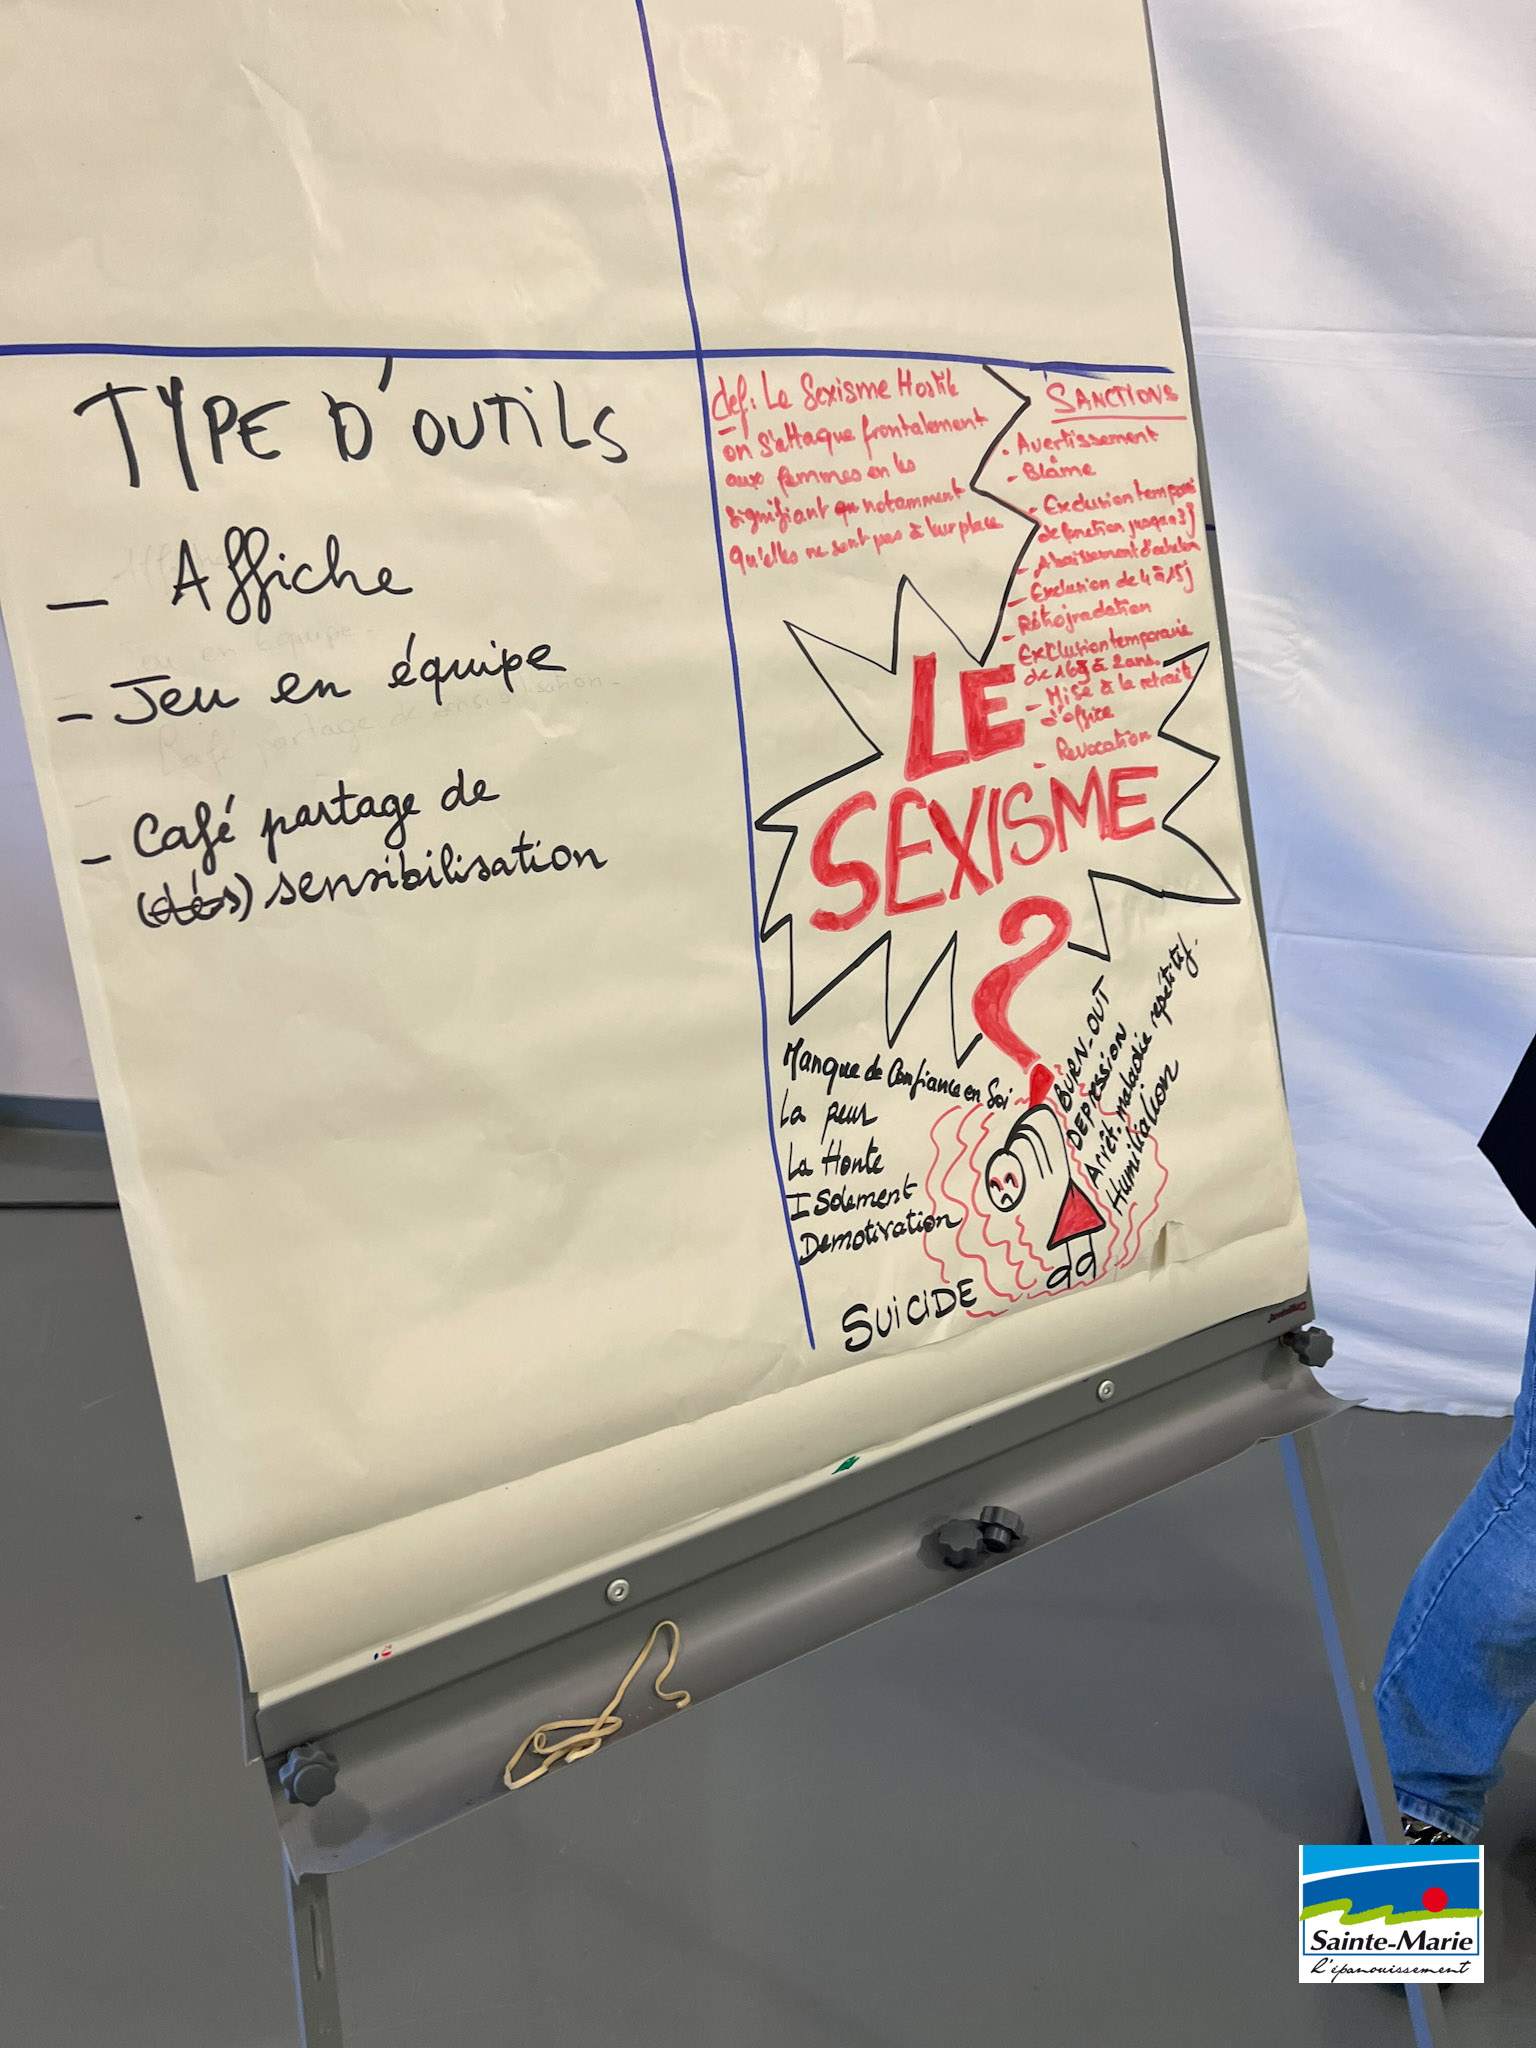 TYPE D'OUTILS
- Affiche
- Jeu en équipe
- Café partage de
(dés) sensibilisation
def: Le Sexisme Hostile
on s'attaque frontalement
aux femmes en les
signifiant que notamment
qu'elles ne sont pas à leur place
SANCTIONS
- Avertissement
- Blâme
- Exclusion
de fonction jusqu'à 3j
- Abaissement d'echelon
- Exclusion de 4 à 15j
- Rétrogradation
Exclusion temporaire
de 16j à 2 ans.
- Mise à la retraite
d'office
- Revocation
LE
SEXISME
?
Manque de Confiance en Soi
La peur
La Honte
ISolement
Demotivation
SUiCIDE
BURN-OUT
DEPRESSION
Arrêt maladie répétitif.
Humiliation
Sainte-Marie
L'épanouissement